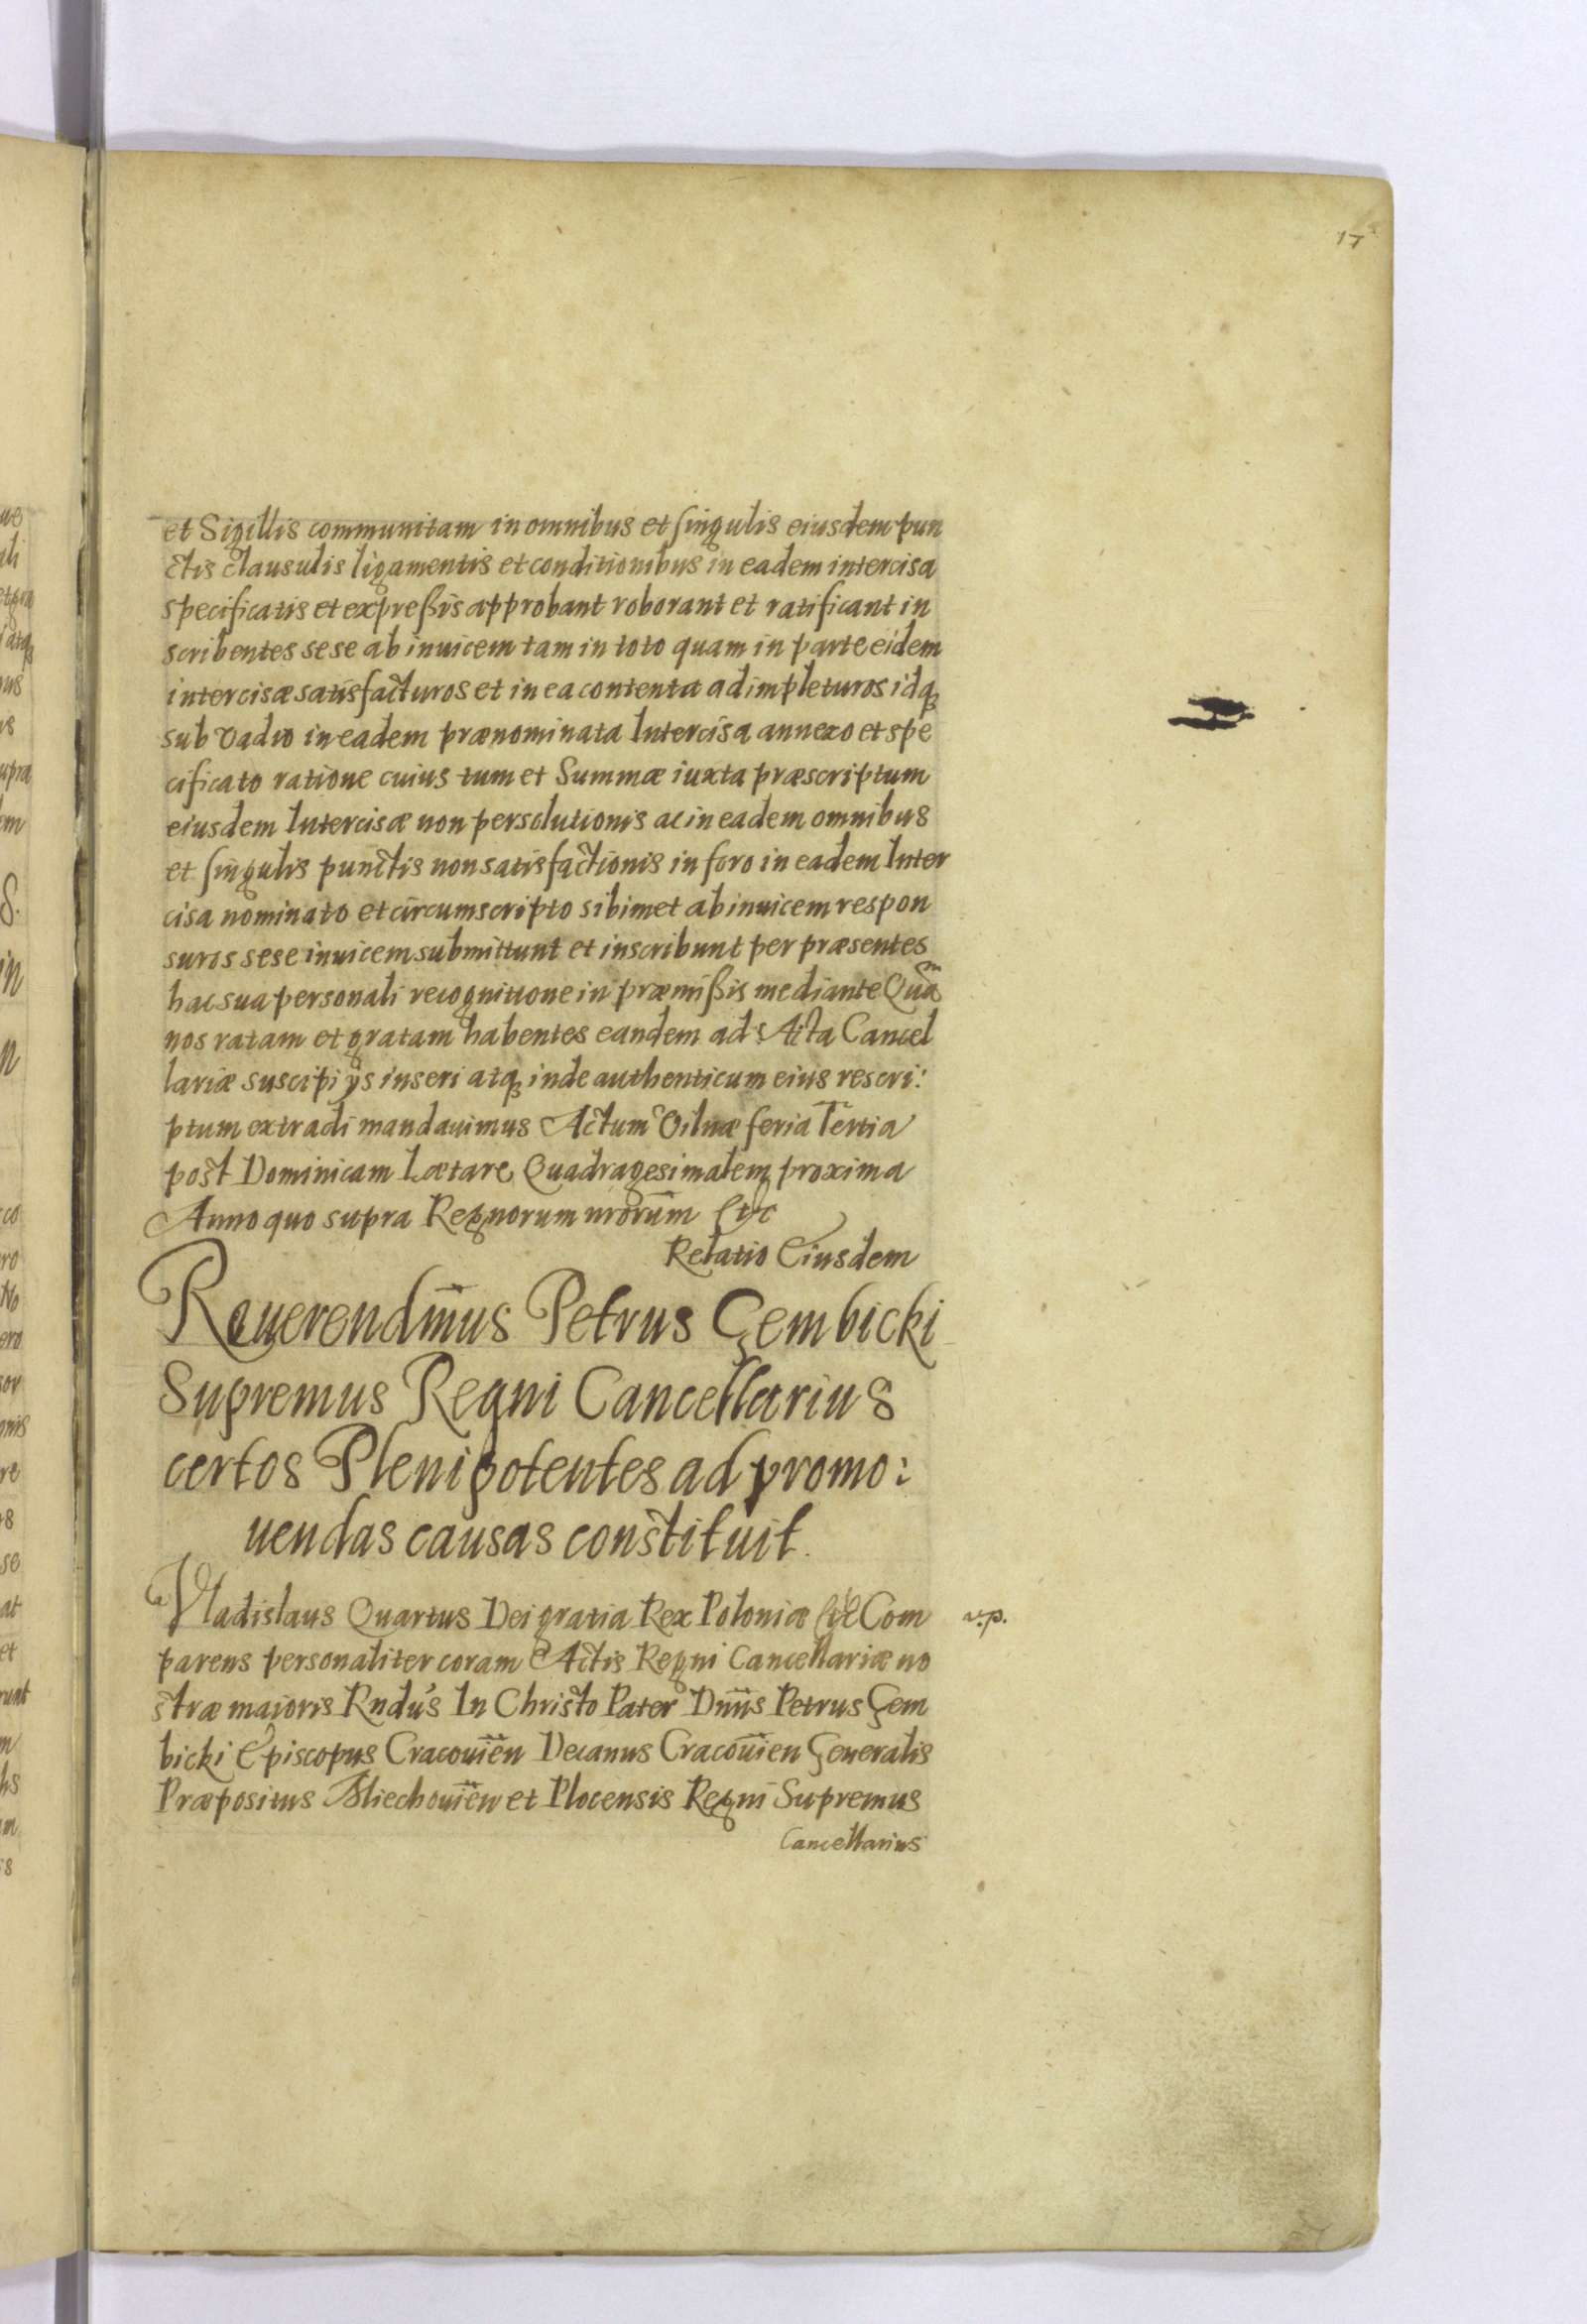 17
et Sigillis communitam in omnibus et singulis eiusdem pun
ctis clausulis ligamentis et conditionibus in eadem intercisa
specificatis et expreßis approbant roborant et ratificant in
scribentes sese ab inuicem tam in toto quam in parte eidem
intercisæ satisfacturos et in ea contenta adimpleturos idq
sub vadio in eadem prænominata Intercisa annexo et spe
cificato ratione cuius tum et Summæ iuxta præscriptum
eiusdem Intercisæ non persolutionis ac in eadem omnibus
et singulis punctis non satisfactionis in foro in eadem Inter
cisa nominato et circumscripto sibimet ab inuicem respon
suros sese inuicem submittunt et inscribunt per præsentes
hac sua personali recognitione in præmißis mediante Quam
nos ratam et gratam habentes eandem ad Acta Cancel
lariæ suscipi ijs inseri atq inde authenticum eius rescri:
ptum extradi mandauimus Actum Vilnæ feria Tertia
post Dominicam Lætare Quadragesimalem proxima
Anno quo supra Regnorum nrorum Etc
Relatio Eiusdem
Reuerendmus Petrus Gembicki
Supremus Regni Cancellarius
certos Plenipotentes ad promo:
uendas causas constituit.
Vladislaus Quartus Dei gratia Rex Poloniæ Etc Com v.p.
parens personaliter coram Actis Regni Cancellariæ no
stræ maioris Rndus In Christo Pater Dnus Petrus Gem
bicki Episcopus Cracouien Decanus Cracouien Generalis
Præpositus Miechouien et Plocensis Regni Supremus
Cancellarius